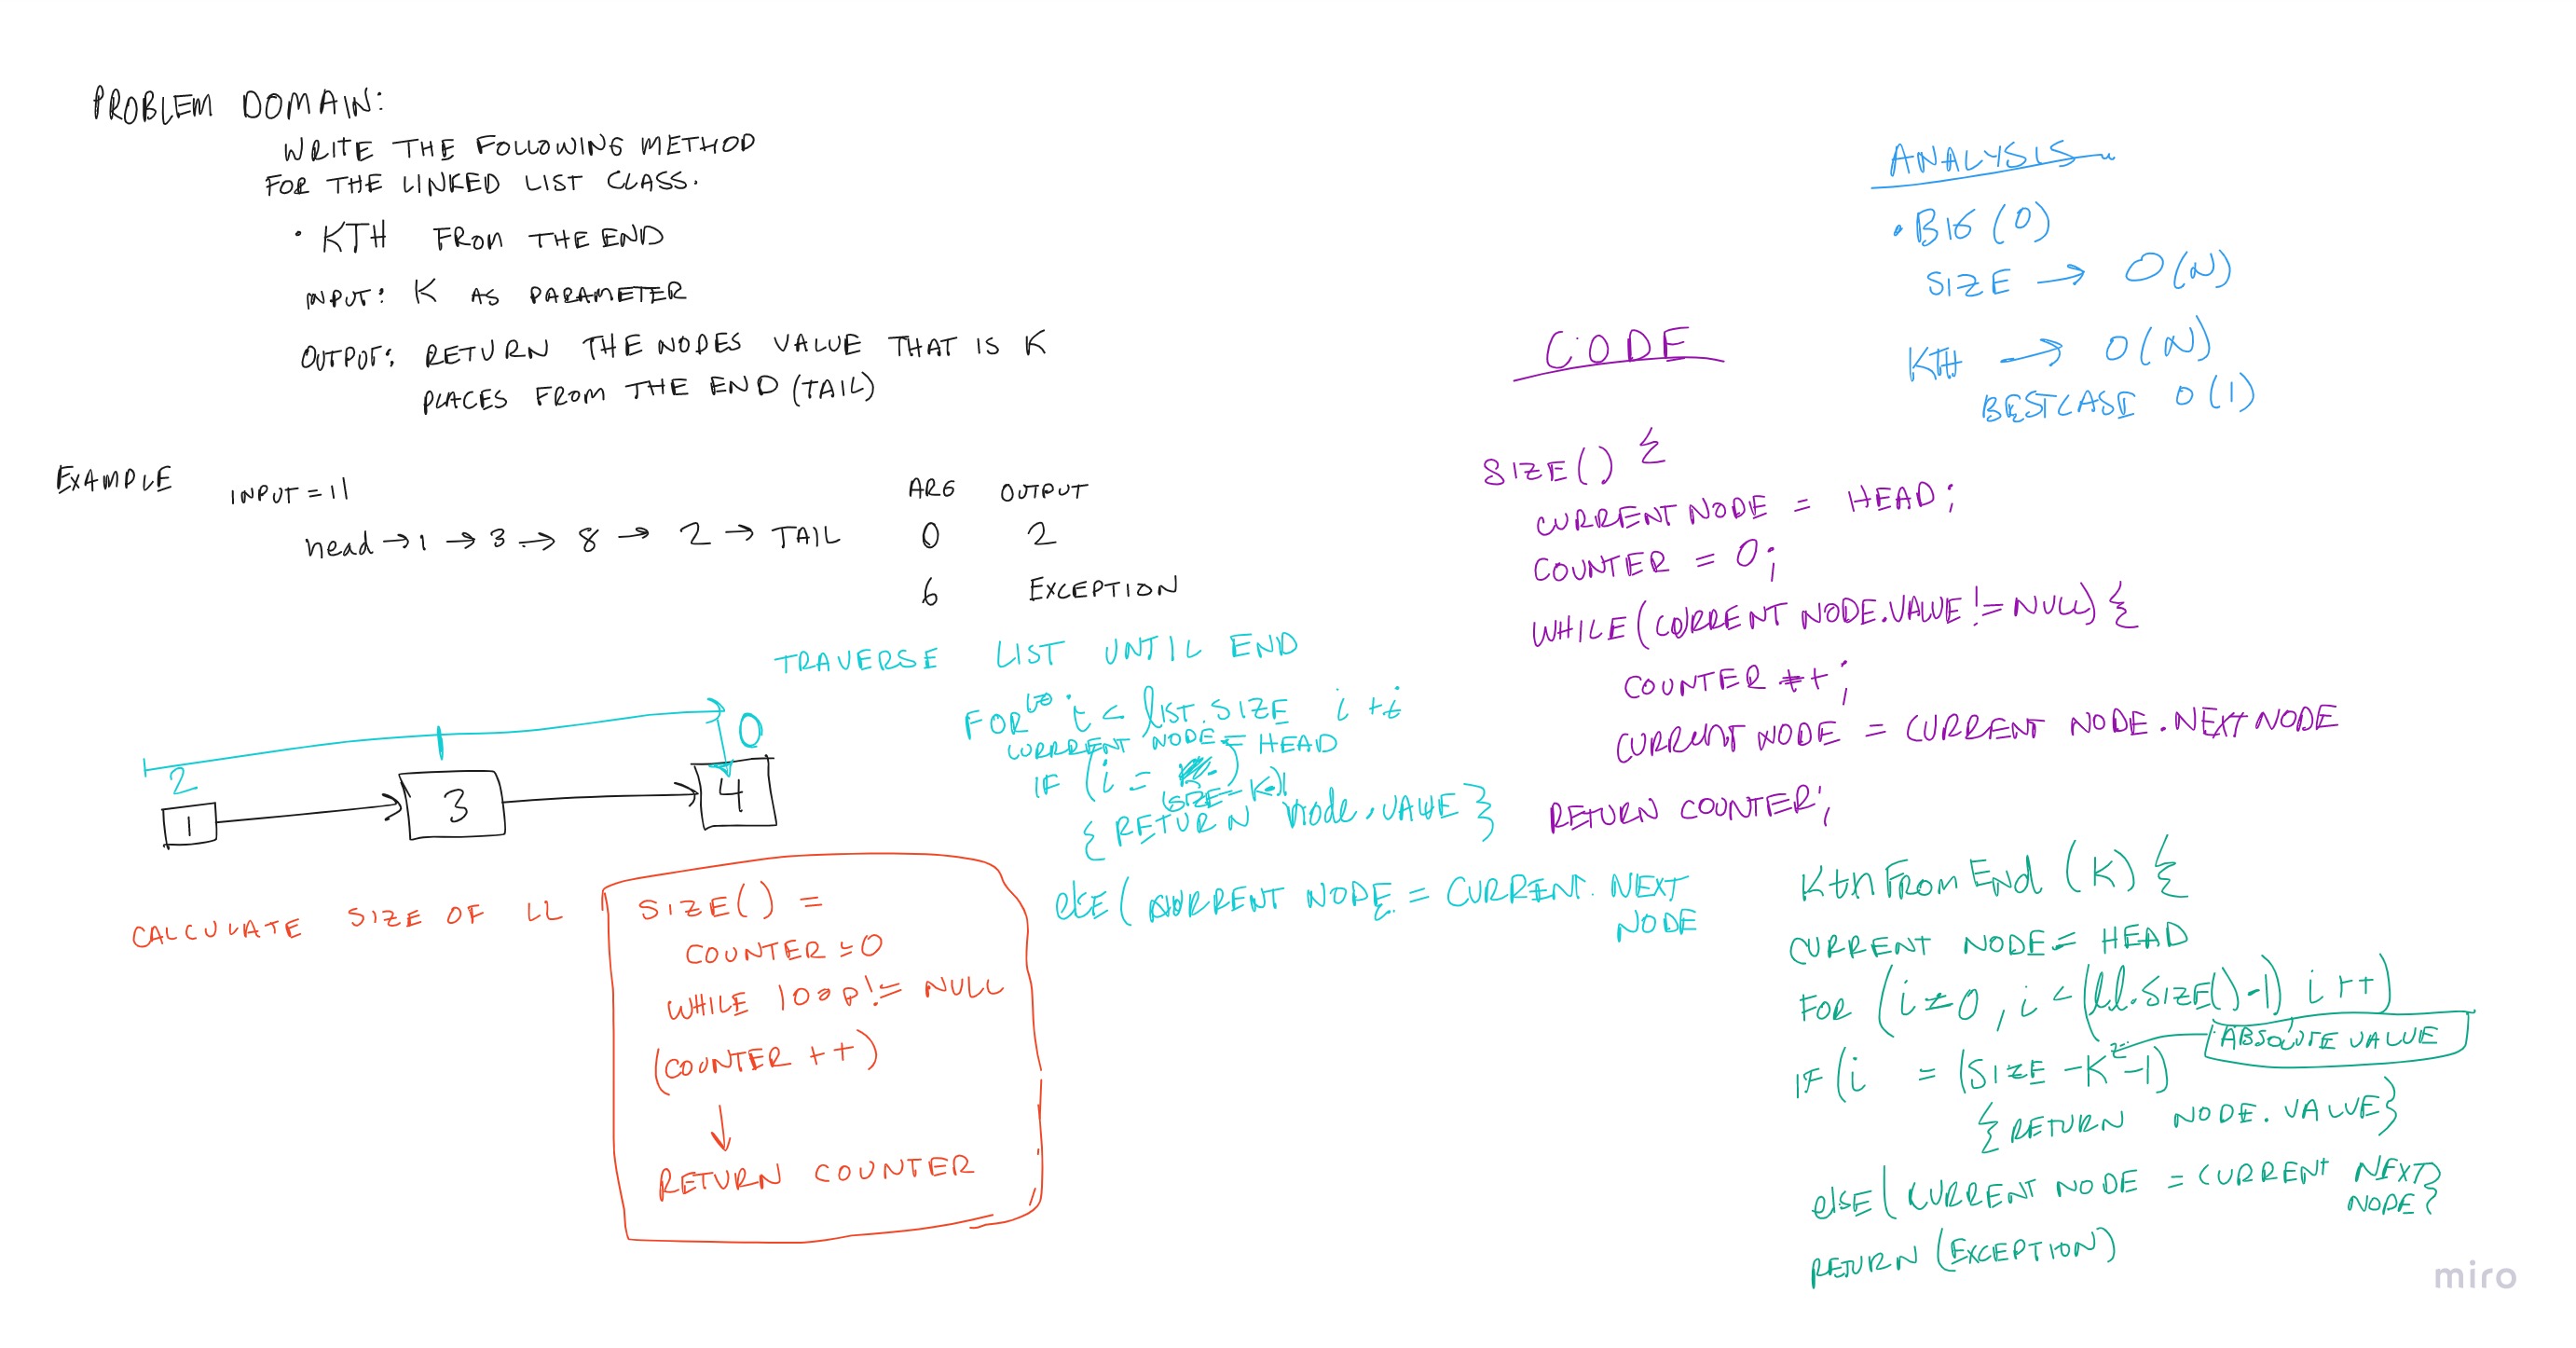 PROBLEM DOMAIN:
WRITE THE FOLLOWING METHOD
FOR THE LINKED LIST CLASS.
• KTH FROM THE END
INPUT: K AS PARAMETER
OUTPUT: RETURN THE NODES VALUE THAT IS K
PLACES FROM THE END (TAIL)
EXAMPLE
INPUT = ll
head → 1 → 3 → 8 → 2 → TAIL
ARG OUTPUT
0 2
6 EXCEPTION
TRAVERSE LIST UNTIL END
FOR i < list.SIZE i ++
CURRENT NODE = HEAD
IF (i = )
(SIZE - K)
{ RETURN node.VALUE }
else ( CURRENT NODE = CURRENT. NEXT
NODE
0
2
1 3 4
CALCULATE SIZE OF LL
SIZE() =
COUNTER = 0
WHILE loop != NULL
(COUNTER ++)
↓
RETURN COUNTER
CODE
SIZE() {
CURRENT NODE = HEAD;
COUNTER = 0;
WHILE (CURRENT NODE.VALUE != NULL) {
COUNTER ++;
CURRENT NODE = CURRENT NODE.NEXT NODE
RETURN COUNTER;
KthFromEnd (K) {
CURRENT NODE = HEAD
FOR (i=0, i < (ll.SIZE()-1) i ++)
ABSOLUTE VALUE
IF (i = (SIZE - K -1)
{ RETURN NODE.VALUE}
else ( CURRENT NODE = CURRENT NEXT
NODE}
RETURN (EXCEPTION)
ANALYSIS
• BIG (O)
SIZE → O(N)
KTH → O(N)
BESTCASE O(1)
miro